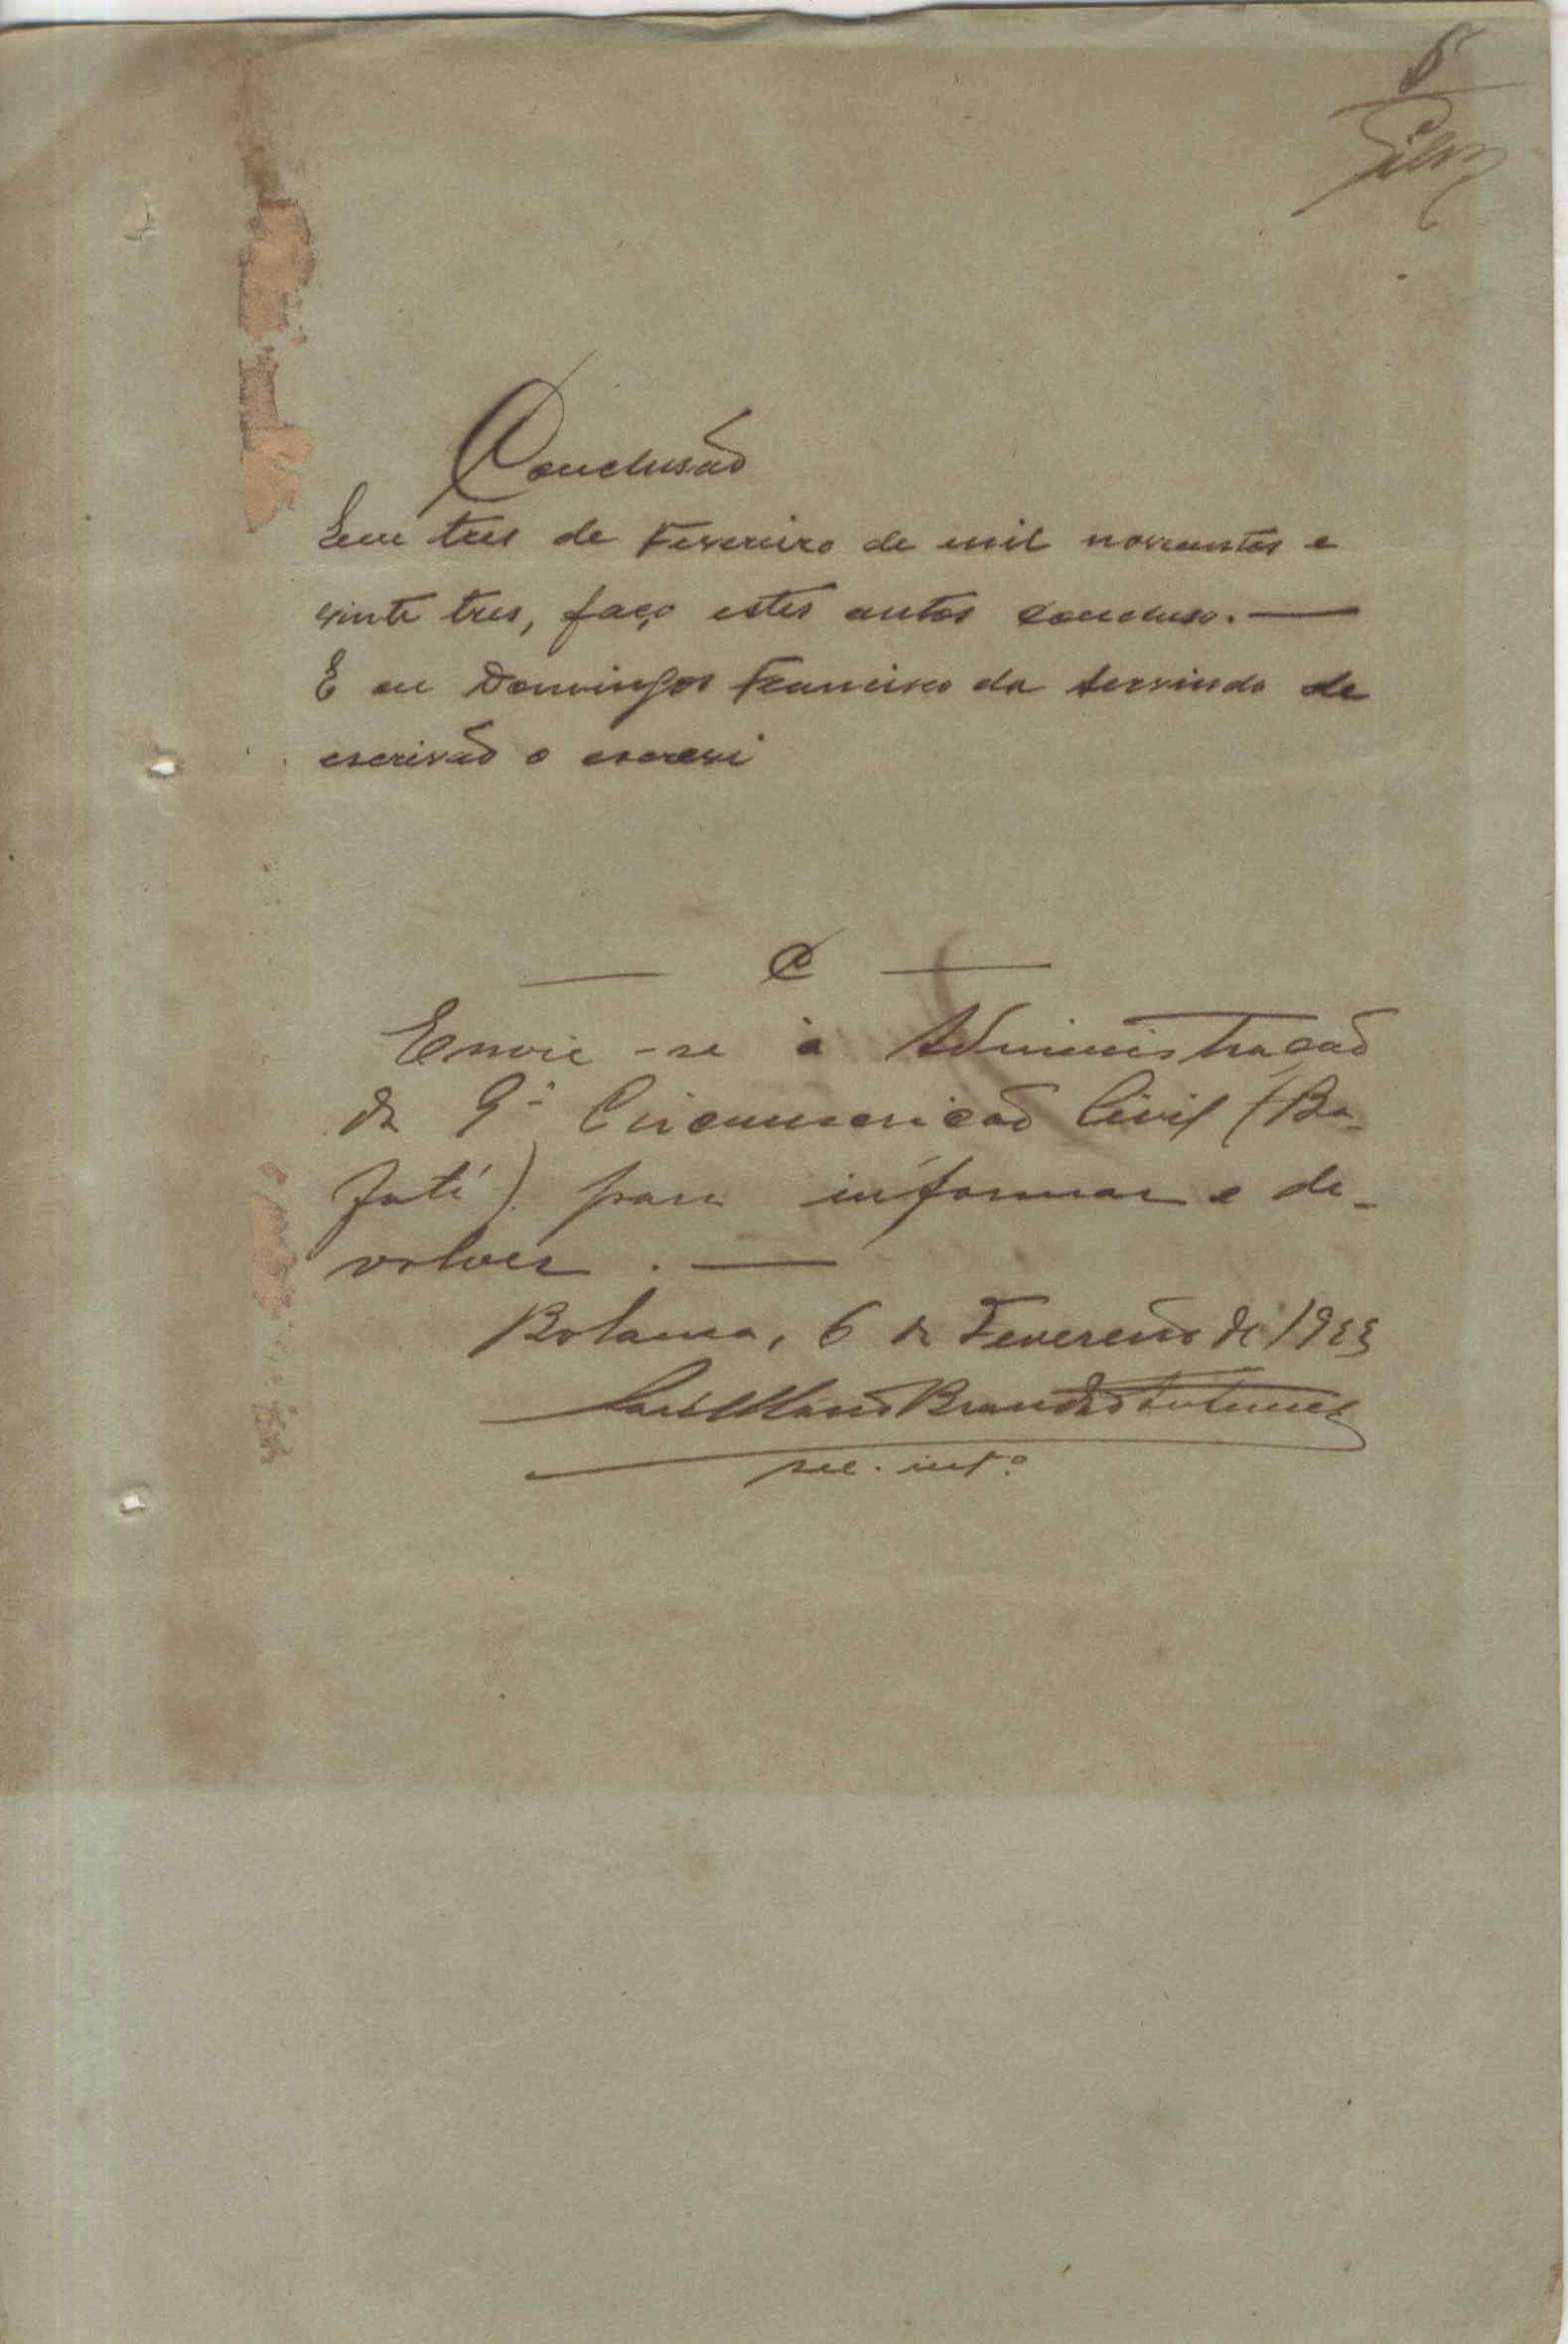 6
Silva
Conclusão
Em tres de Fevereiro de mil novecentos e
vinte tres, faço estes autos concluso. —
E eu Domingos Francisco da servindo de
escrivão o escrevi
— C —
Envie-se à Administração
da 9ª Circunscrição Civil (Ba-
fatá) para informar e de-
volver. —
Bolama, 6 de Fevereiro de 1923
Brandão Antunes
sec. intº